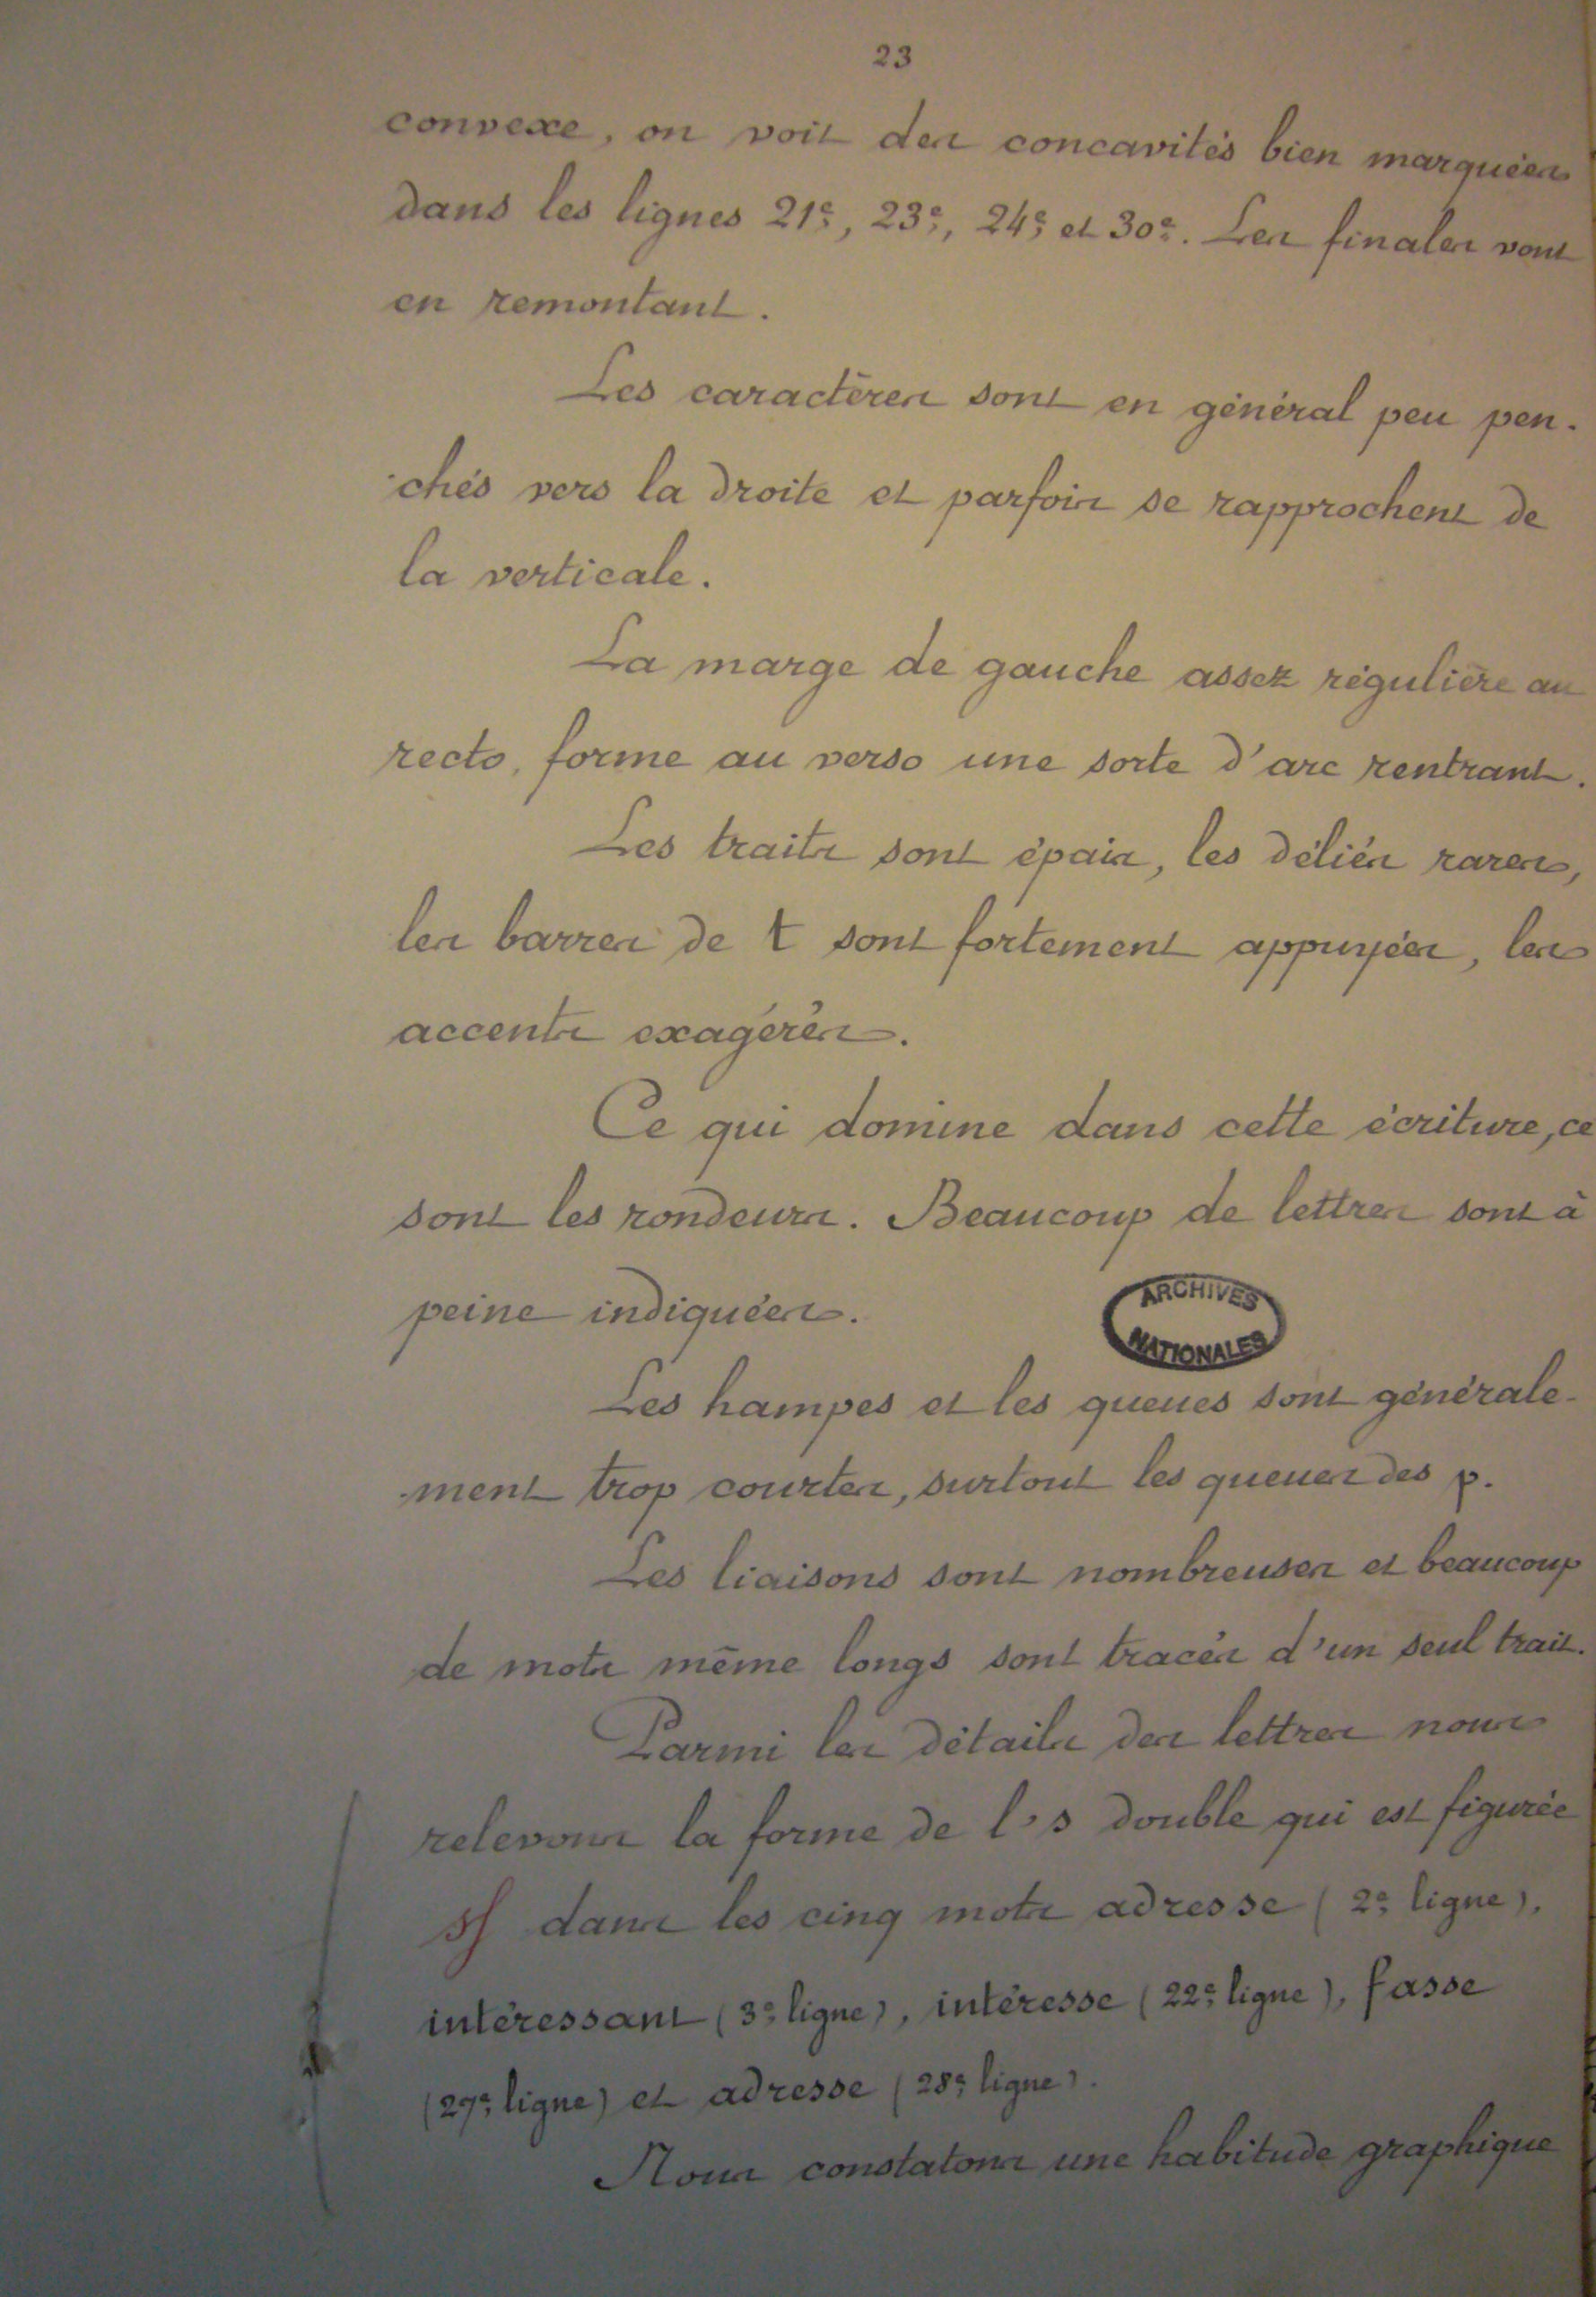 23
convexe, on voit des concavités bien marquées
dans les lignes 21e, 23e, 24e et 30e. Les finales vont
en remontant.
Les caractères sont en général peu pen-
-chés vers la droite et parfois se rapprochent de
la verticale.
La marge de gauche assez régulière au
recto, forme au verso une sorte d'arc rentrant.
Les traits sont épais, les déliés rares,
les barres de t sont fortement appuyées, les
accents exagérés.
Ce qui domine dans cette écriture, ce
sont les rondeurs. Beaucoup de lettres sont à
peine indiquées.
ARCHIVES
NATIONALES
Les hampes et les queues sont générale-
-ment trop courtes, surtout les queues des p.
Les liaisons sont nombreuses et beaucoup
de mots même longs sont tracés d'un seul trait.
Parmi les détails des lettres nous
relevons la forme de l's double qui est figurée
sſ dans les cinq mots adresse (2e ligne),
intéressant (3e ligne), intéresse (22e ligne), fasse
(27e ligne) et adresse (28e ligne).
Nous constatons une habitude graphique